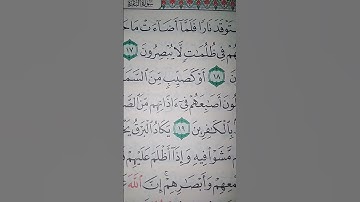 سورة البقرة
ستوقد نارا فلما أضاءت ما ح
هم في ظلمات لا يبصرون ١٧
١٨ أو كصيب من السما
لون أصبعهم في ءاذانهم من الص
بالكفرين ١٩ يكاد البرق يخ
م مشوا فيه وإذا أظلم عليهم
معهم وأبصرهم إن الله